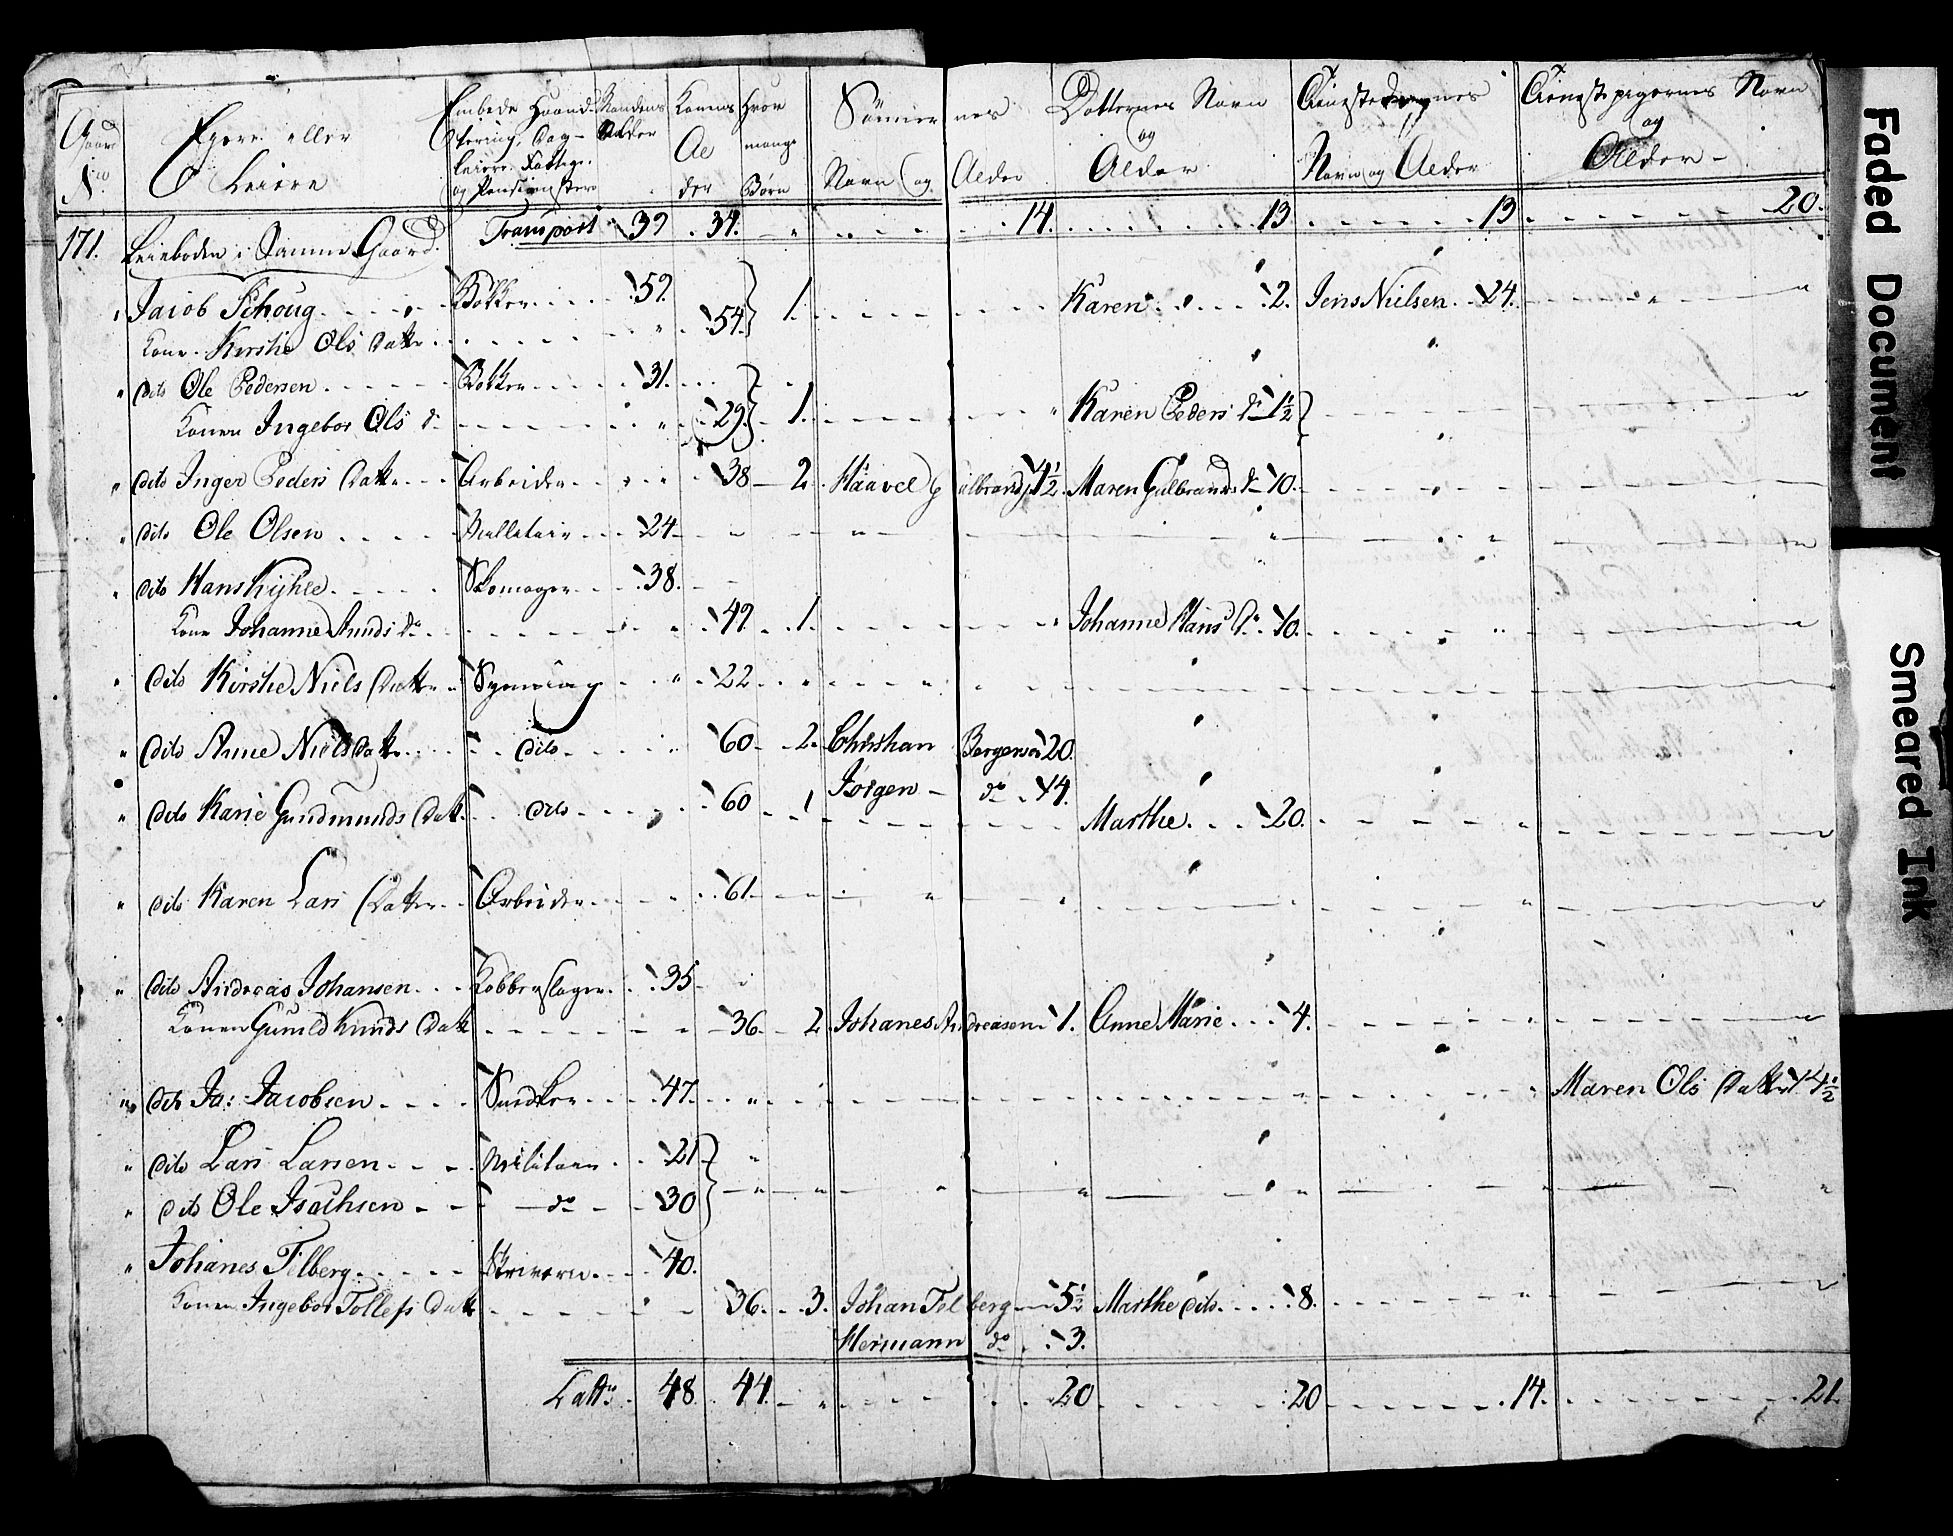 Gaard No Eyere eller Leiere Embede Haandtering, Dag- leiere Fattige og Pensionister Mandens Alder Konens Alder Hvor mange Børn Sönnernes Navn og Alder Dotternes Navn og Alder Navn og Alder Tienstepigernes Navn og Alder
171. Leieboden i Samme Gaard. Transport 39 34. 14. 13. 13 20.
" Jacob Schoug Bökker 59. 1. Karen 2. Jens Nielsen 24.
Kone Kirstie Ols Datter 54.
" dito Ole Pedersen Bökker 31.
Konen Ingebor Ols d. 29. 1. Karen Peders d. 1½
" dito Inger Peders Datter Arbeider 38 2. Haavel Gulbrands 4½ Maren Gulbrands d. 10.
" dito Ole Olsen Millitair 24
" dito Hans Kyhle Skomager 38.
Kone Johanne Amids dr 49. 1. Johanne Hans dr 10.
" dito Kirstie Niels Datter Syening 22
" dito Anne Niels Datter dito 60 2. Christian Bergersen 20.
Jörgen do 14.
" dito Karie Gundmunds Datt. dito 60 1 Marthe 20.
" dito Karen Lars Datter Arbeider 61.
" dito Andreas Johansen Kobberslager 35
Konen Gunild Knuds Datt 36 2. Johanes Andreasen 1. Anne Marie 4.
" dito Ja: Jacobsen Snedker 47. Maren Ols Datter 14½
" dito Lars Larsen Militair 21
" dito Ole Isachsen do 30
" Johanes Felberg Skrivern 40.
Konen Ingebor Tollefs Datt 36. 3. Johan Felberg 5½ Marthe dito 8.
Hermann do 3.
Latt: 48 44. 20 20 14. 21.
Faded Document
Smeared Ink